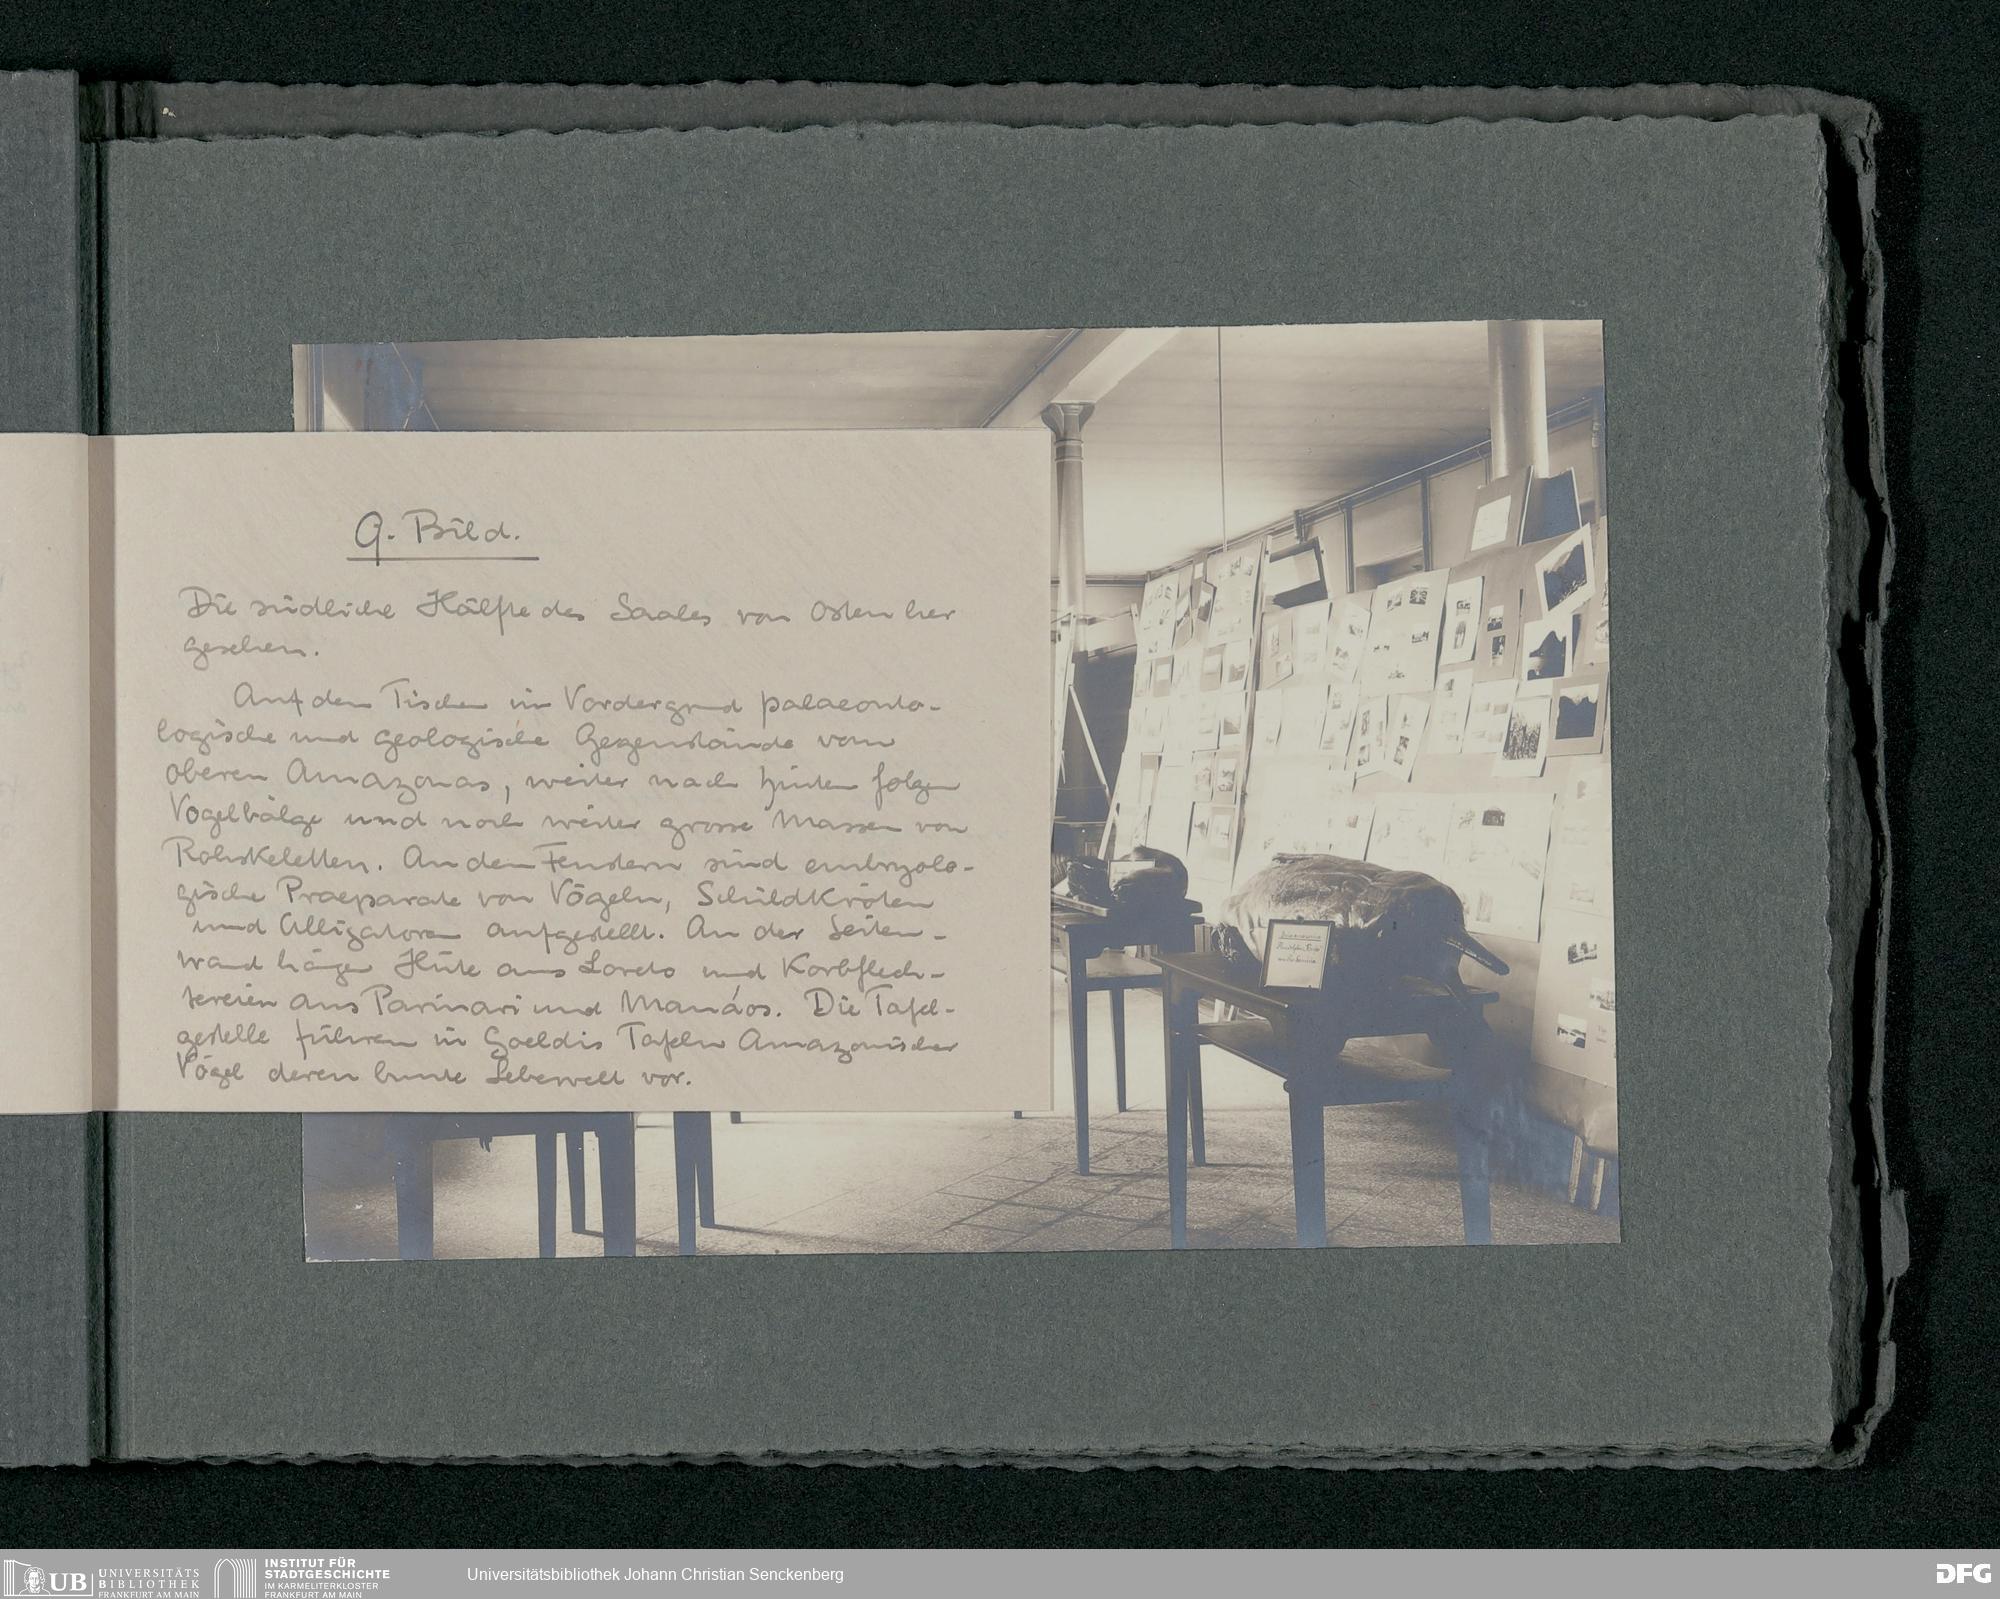 9. Bild.
Die südliche Hälfte des Saales von Osten her
gesehen.
Auf den Tischen im Vordergrund palaeonto-
logische und geologische Gegenstände vom
oberen Amazonas, weiter nach hinten folgen
Vogelbälge und noch weiter grosse Massen von
Rohskeletten. An den Fenstern sind embryolo-
gische Praeparate von Vögeln, Schildkröten
und Alligatoren aufgestellt. An der Seiten-
wand hängen Hüte aus Loreto und Korbflech-
tereien aus Parinari und Manáos. Die Tafel-
gestelle führen in Goeldis Tafeln Amazonischer
Vögel deren bunte Lebewelt vor.
UB UNIVERSITÄTS
BIBLIOTHEK
FRANKFURT AM MAIN
INSTITUT FÜR
STADTGESCHICHTE
IM KARMELITERKLOSTER
FRANKFURT AM MAIN
Universitätsbibliothek Johann Christian Senckenberg
DFG